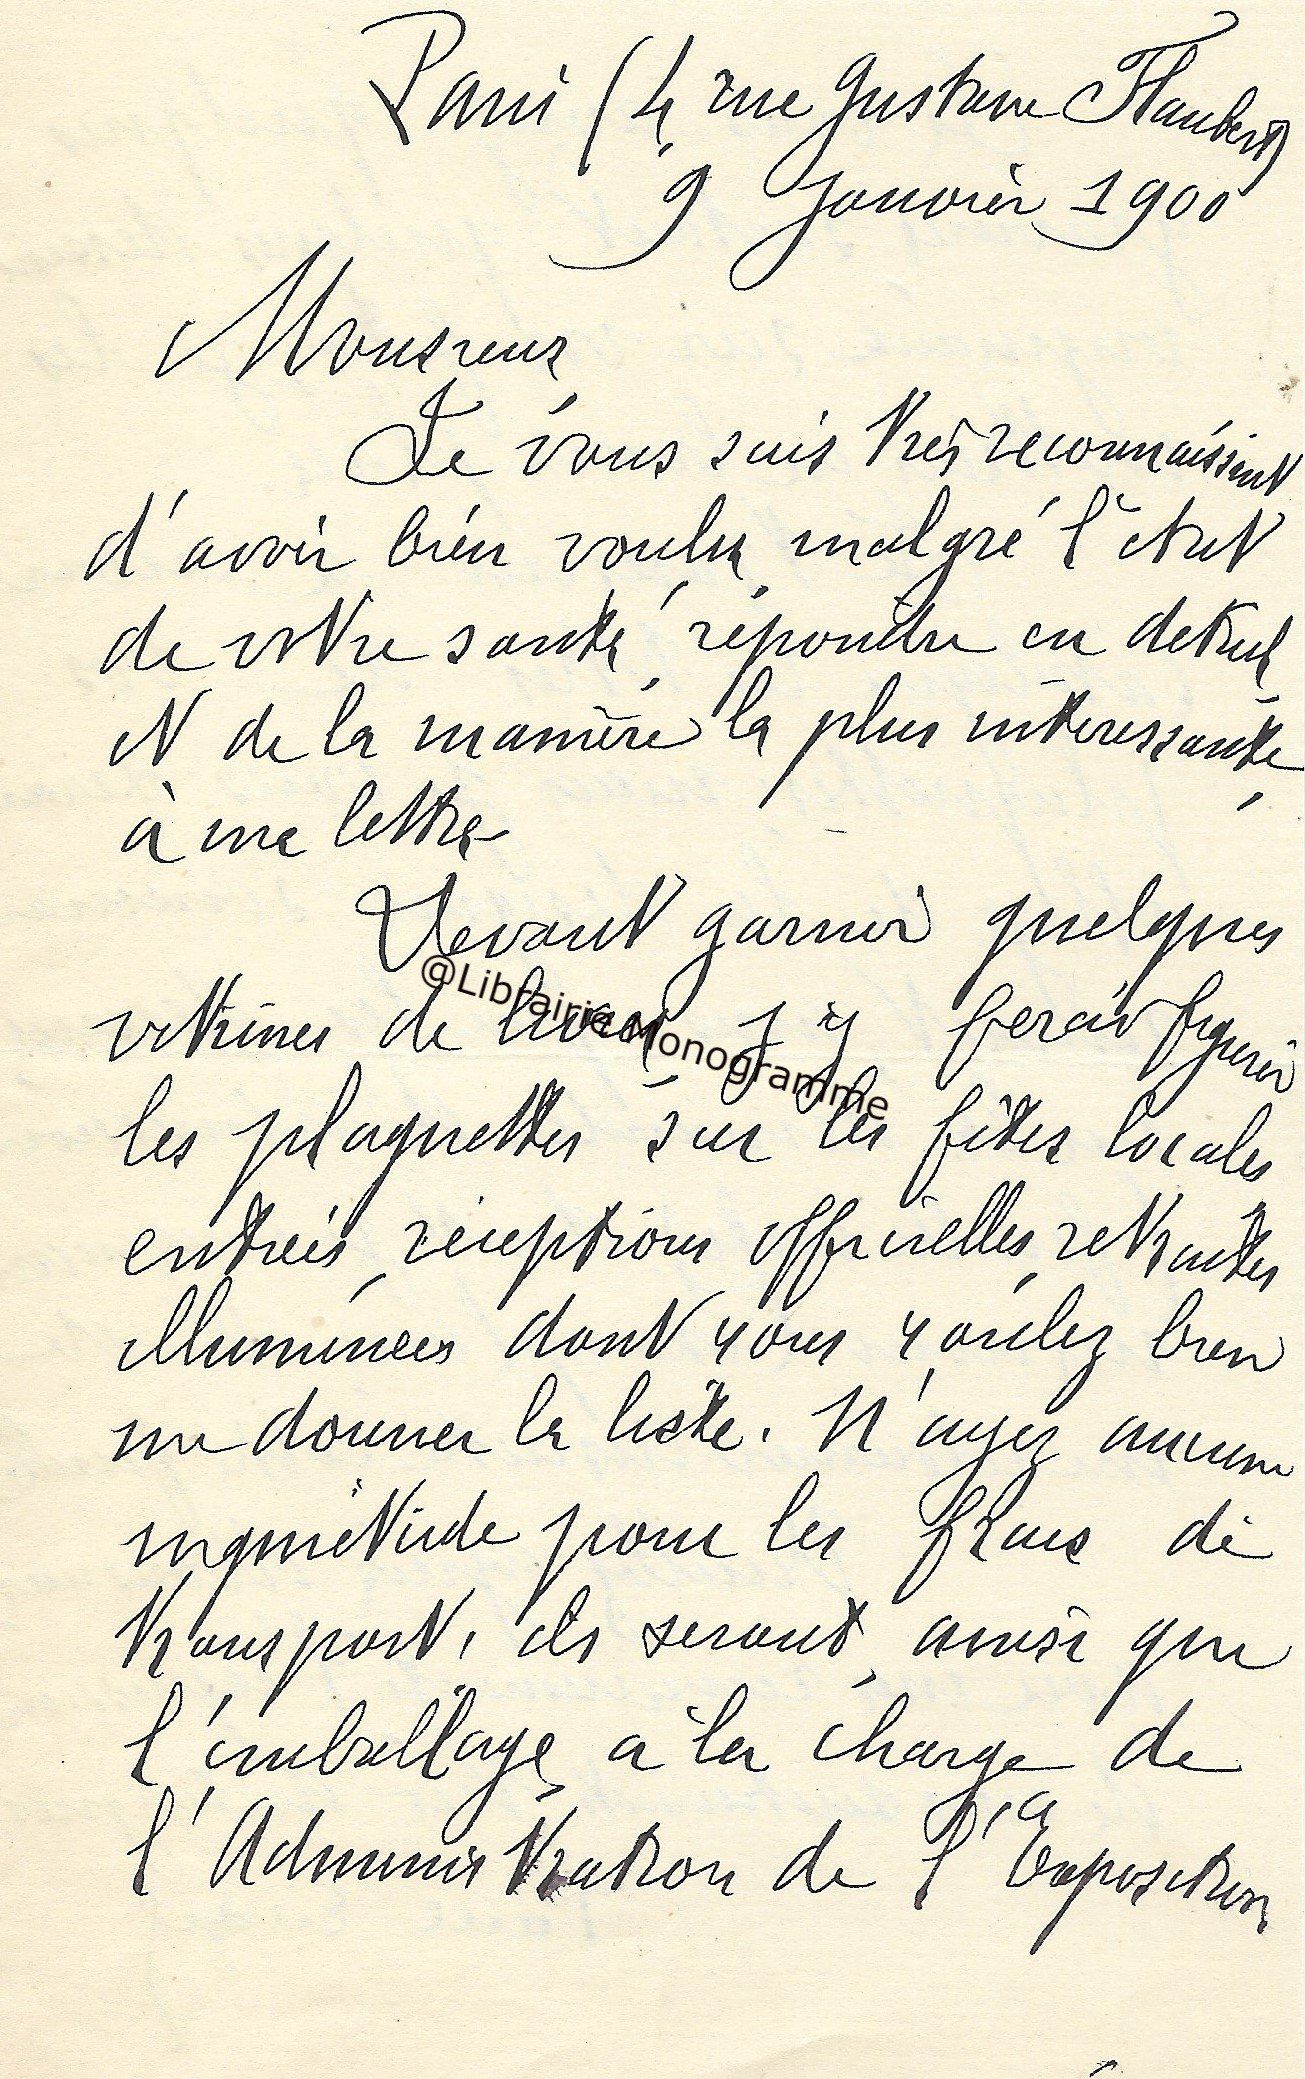 Paris (4 rue Gustave Flaubert)
9 Janvier 1900
Monsieur
Je vous suis très reconnaissant
d'avoir bien voulu, malgré l'état
de votre santé, répondre en détail
et de la manière la plus intéressante
à ma lettre
Devant garnir quelques
vitrines de livres, j'y ferai figurer
@Librairie Monogramme
les plaquettes sur les fêtes locales
entrées, réceptions officielles, retraites
illuminées dont vous voulez bien
me donner la liste. N'ayez aucune
inquiétude pour les frais de
transport, ils seront, ainsi que
l'emballage, à la charge de
l'Administration de l'Exposition